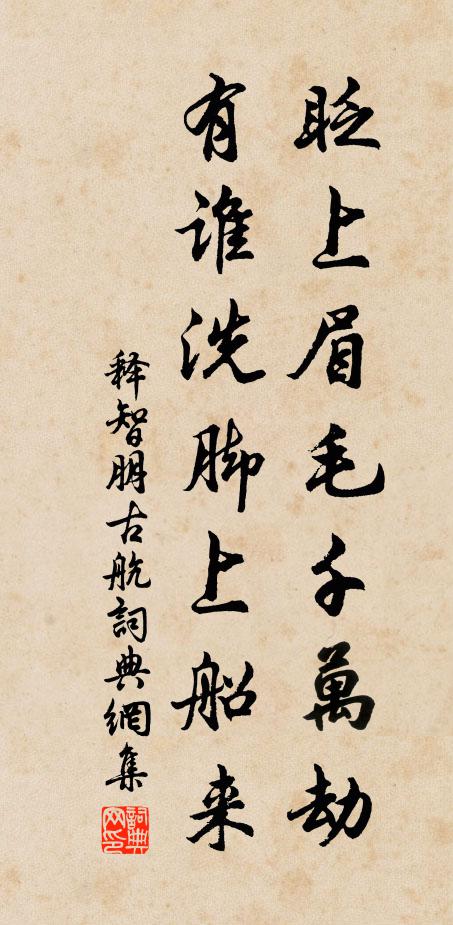 眨上眉毛千萬劫
有谁洗脚上船来
释智朋古航詞典網集
詞典网印